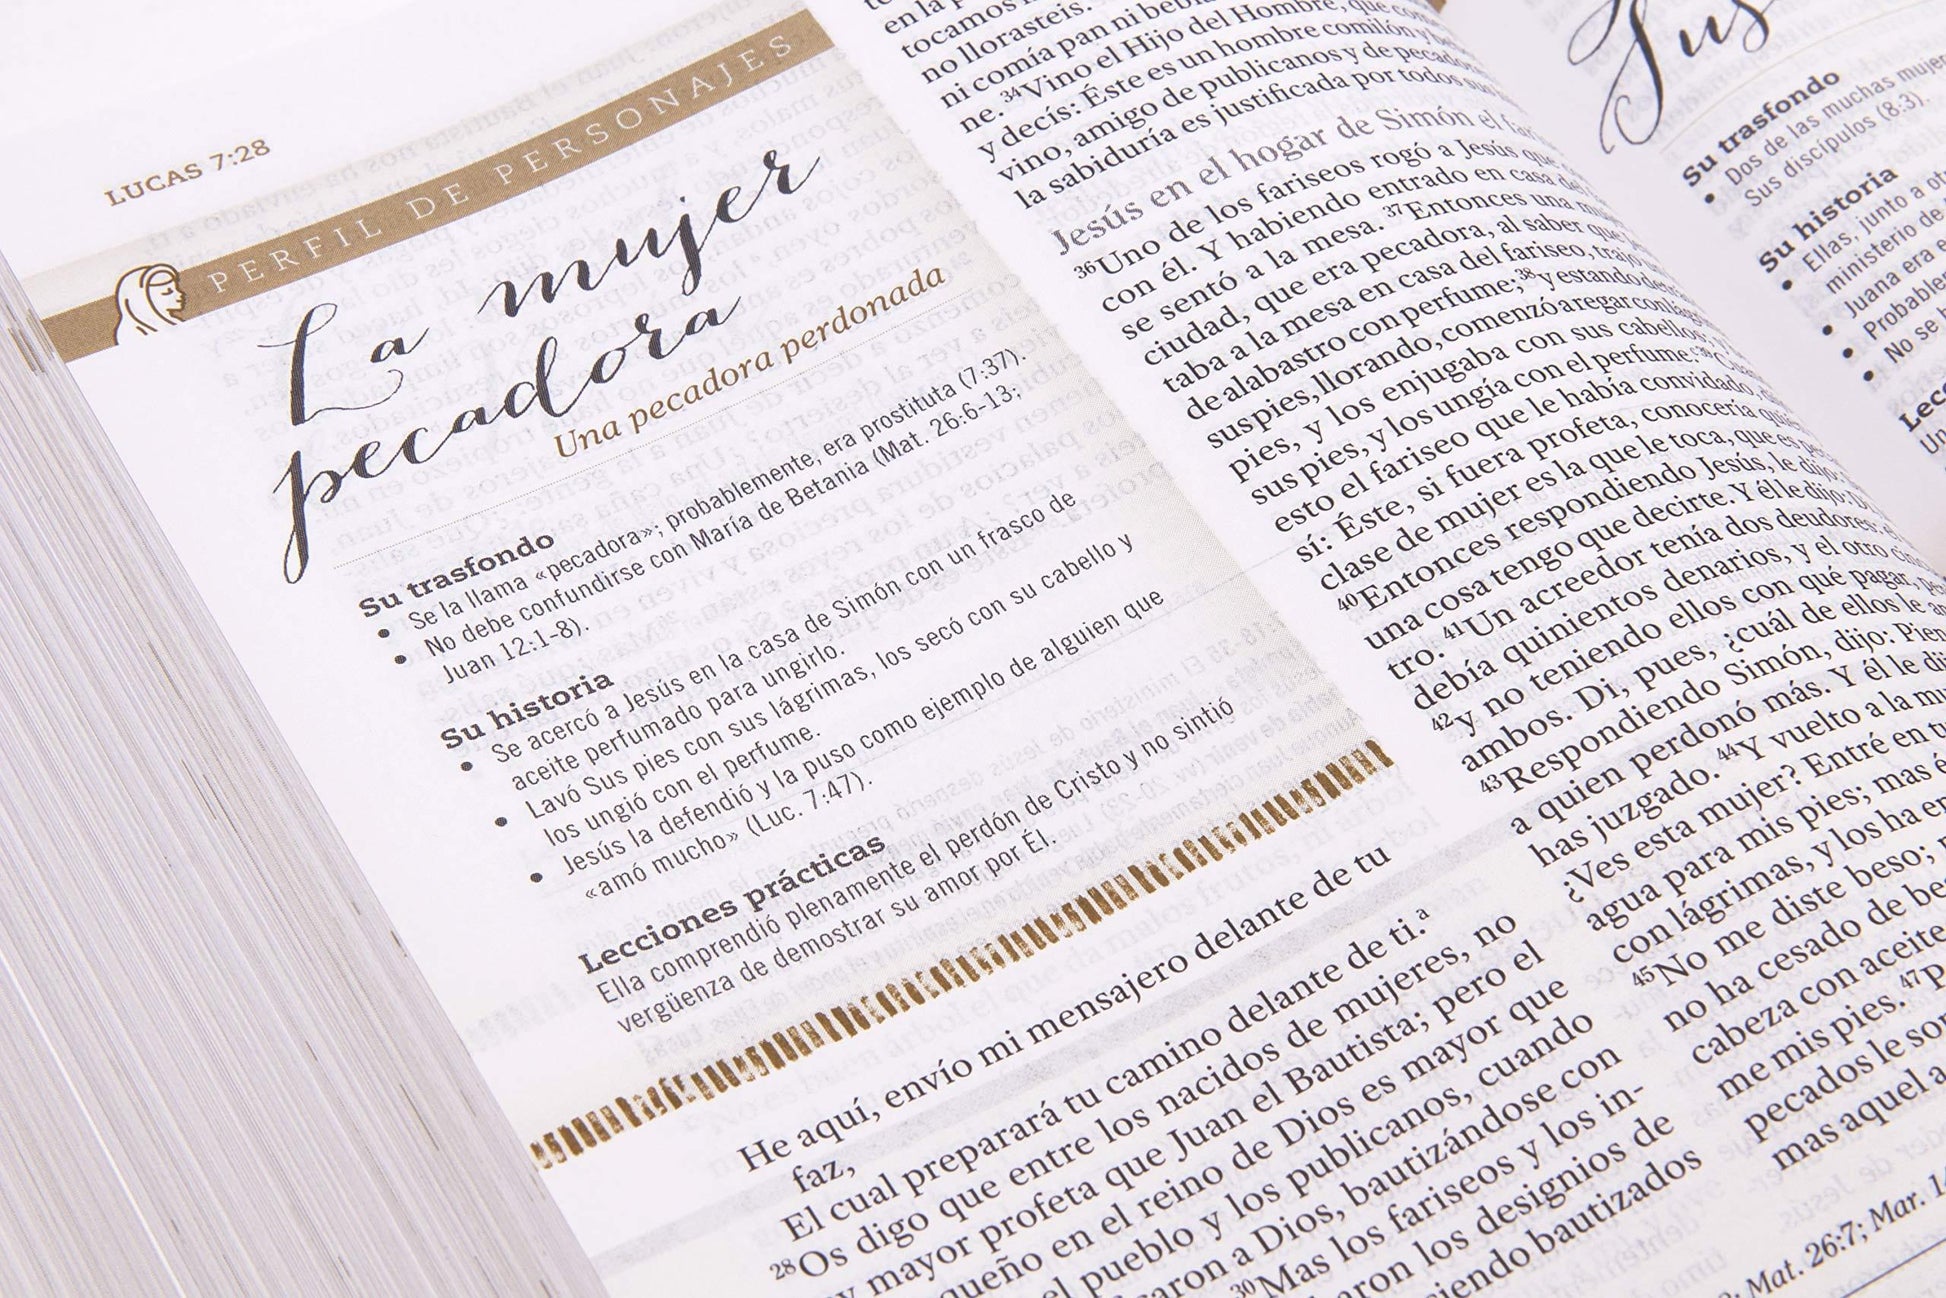 LUCAS 7:28
PERFIL DE PERSONAJES
La mujer
pecadora
Una pecadora perdonada
Su trasfondo
• Se la llama «pecadora»; probablemente, era prostituta (7:37).
• No debe confundirse con María de Betania (Mat. 26:6-13;
Juan 12:1-8).
Su historia
• Se acercó a Jesús en la casa de Simón con un frasco de
aceite perfumado para ungirlo.
• Lavó Sus pies con sus lágrimas, los secó con su cabello y
los ungió con el perfume.
• Jesús la defendió y la puso como ejemplo de alguien que
«amó mucho» (Luc. 7:47).
Lecciones prácticas
Ella comprendió plenamente el perdón de Cristo y no sintió
vergüenza de demostrar su amor por Él.
He aquí, envío mi mensajero delante de tu
faz,
El cual preparará tu camino delante de ti.ᵃ
²⁸Os digo que entre los nacidos de mujeres, no
mayor profeta que Juan el Bautista; pero el
en el reino de Dios es mayor que
el pueblo y los publicanos, cuando
a Dios, bautizándose con
³⁰Mas los fariseos y los in-
los designios de
bautizados
tocamos
no llorasteis.
ni comía pan ni
ne. ³⁴Vino el Hijo del Hombre, que
y decís: Éste es un hombre comilón y
vino, amigo de publicanos y de
la sabiduría es justificada por todos sus
Jesús en el hogar de Simón el
³⁶Uno de los fariseos rogó a Jesús que
con él. Y habiendo entrado en casa del
se sentó a la mesa. ³⁷Entonces una
ciudad, que era pecadora, al saber que
taba a la mesa en casa del fariseo, trajo
de alabastro con perfume; ³⁸y estando detrás
sus pies, llorando, comenzó a regar con
pies, y los enjugaba con sus cabellos;
sus pies, y los ungía con el perfume.
esto el fariseo que le había convidado,
sí: Éste, si fuera profeta, conocería
clase de mujer es la que le toca, que es
⁴⁰Entonces respondiendo Jesús, le dijo:
una cosa tengo que decirte. Y él le dijo:
tro. ⁴¹Un acreedor tenía dos deudores:
debía quinientos denarios, y el otro
⁴²y no teniendo ellos con qué pagar,
ambos. Di, pues, ¿cuál de ellos le
⁴³Respondiendo Simón, dijo:
a quien perdonó más. Y él le
has juzgado. ⁴⁴Y vuelto a la
¿Ves esta mujer? Entré en
agua para mis pies; mas
con lágrimas, y los ha
⁴⁵No me diste beso;
no ha cesado de
cabeza con aceite
me mis pies. ⁴⁷
pecados le
mas aquel
Mat. 26:7; Mar.
Su trasfondo
• Dos de las muchas
Sus discípulos (8:3).
Su historia
• Ellas, junto a
ministerio de
• Juana era
•
• No se